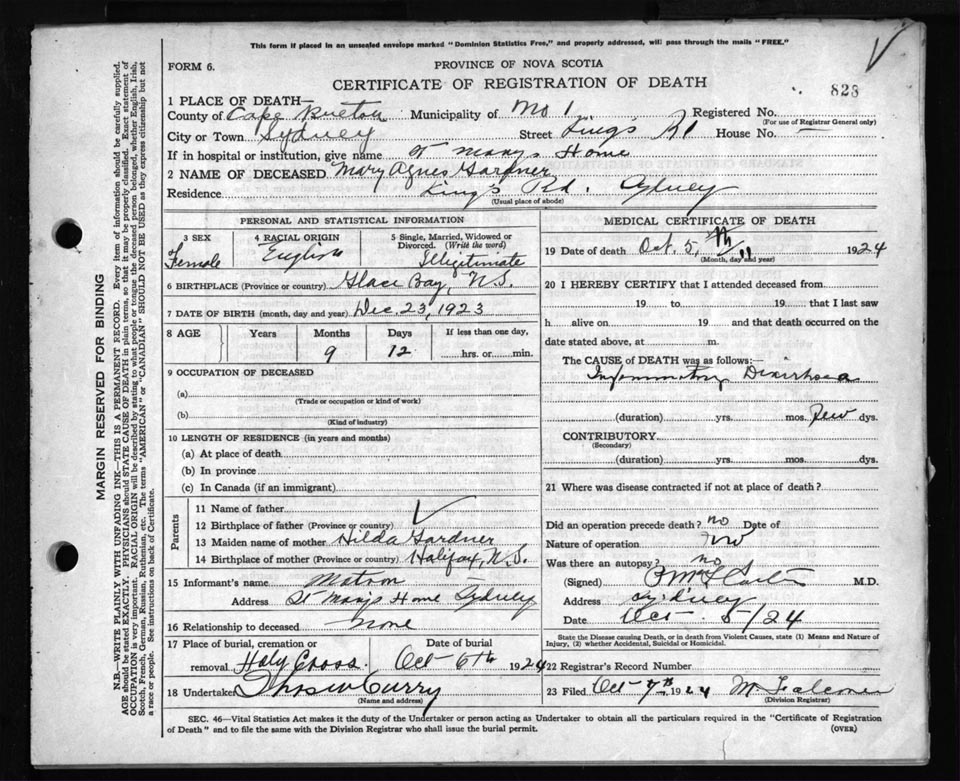 This form if placed in an unsealed envelope marked "Dominion Statistics Free," and properly addressed, will pass through the mails "FREE."
FORM 6.
PROVINCE OF NOVA SCOTIA
CERTIFICATE OF REGISTRATION OF DEATH
823
1 PLACE OF DEATH—
County of Cape Breton Municipality of No 1 Registered No.
(For use of Registrar General only)
City or Town Sydney Street King's Rd House No. —
If in hospital or institution, give name St Mary's Home
2 NAME OF DECEASED Mary Agnes Gardner
Residence King's Rd. Sydney
(Usual place of abode)
PERSONAL AND STATISTICAL INFORMATION
3 SEX 4 RACIAL ORIGIN 5 Single, Married, Widowed or Divorced. (Write the word)
Female English Illegitimate
6 BIRTHPLACE (Province or country) Glace Bay, N.S.
7 DATE OF BIRTH (month, day and year) Dec 23, 1923
8 AGE Years Months Days If less than one day,
9 12 hrs. or min.
9 OCCUPATION OF DECEASED
(a)
(Trade or occupation or kind of work)
(b)
(Kind of industry)
10 LENGTH OF RESIDENCE (in years and months)
(a) At place of death
(b) In province
(c) In Canada (if an immigrant)
Parents
11 Name of father
12 Birthplace of father (Province or country)
13 Maiden name of mother Hilda Gardner
14 Birthplace of mother (Province or country) Halifax, N.S.
15 Informant's name Matron
Address St Mary's Home Sydney
16 Relationship to deceased None
17 Place of burial, cremation or Date of burial
removal Holy Cross. Oct 6th 1924
18 Undertaker Curry
(Name and address)
MEDICAL CERTIFICATE OF DEATH
19 Date of death Oct. 5, th 1924
(Month, day and year)
20 I HEREBY CERTIFY that I attended deceased from
19 to 19 that I last saw
h alive on 19 and that death occurred on the
date stated above, at m.
The CAUSE of DEATH was as follows:—
Inflammatory Diarrhoea
(duration) yrs. mos. Few dys.
CONTRIBUTORY
(Secondary)
(duration) yrs. mos. dys.
21 Where was disease contracted if not at place of death?
Did an operation precede death? no Date of
Nature of operation
Was there an autopsy? no
(Signed) M.D.
Address Sydney
Date Oct 5/24
State the Disease causing Death, or in death from Violent Causes, state (1) Means and Nature of
Injury, (2) whether Accidental, Suicidal or Homicidal.
22 Registrar's Record Number
23 Filed Oct 7th 1924
(Division Registrar)
SEC. 46—Vital Statistics Act makes it the duty of the Undertaker or person acting as Undertaker to obtain all the particulars required in the "Certificate of Registration
of Death" and to file the same with the Division Registrar who shall issue the burial permit. (OVER)
MARGIN RESERVED FOR BINDING
N.B.—WRITE PLAINLY WITH UNFADING INK—THIS IS A PERMANENT RECORD. Every item of information should be carefully supplied.
AGE should be stated EXACTLY. PHYSICIANS should STATE CAUSE OF DEATH in plain terms, so that it may be properly classified. Exact statement of
OCCUPATION is very important. RACIAL ORIGIN will be described by stating to what people or tongue the deceased person belonged, whether English, Irish,
Scotch, French, German, Russian, Ruthenian, etc. The terms "AMERICAN" or "CANADIAN" SHOULD NOT BE USED as they express citizenship but not
a race or people. See instructions on back of Certificate.